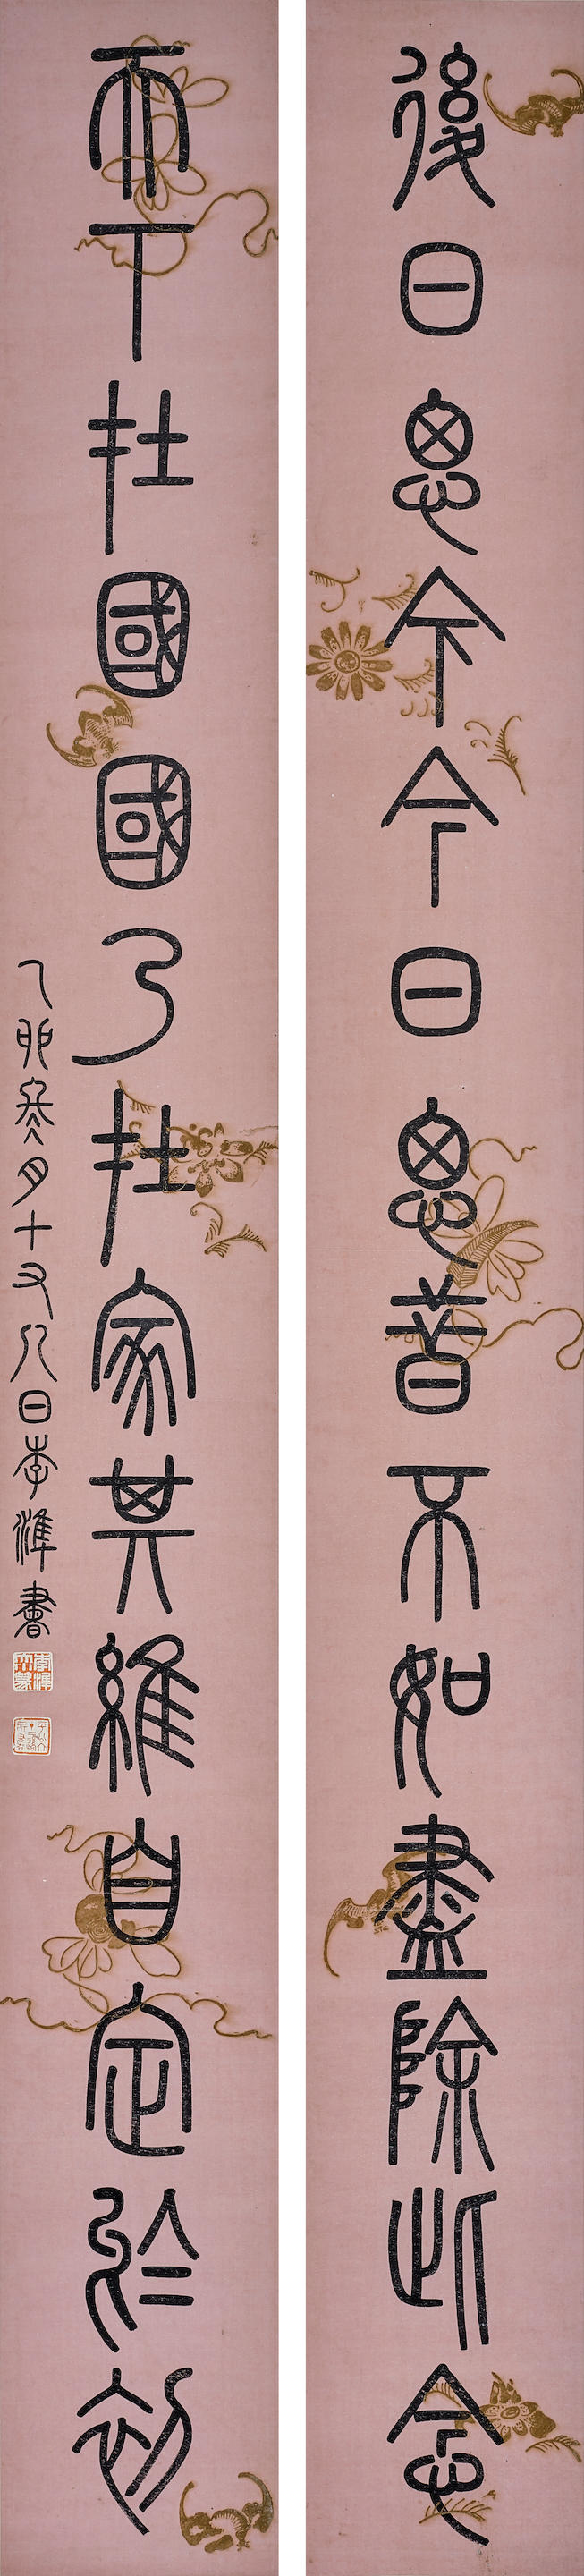 後日思今今日思昔不如盡除此念
天下在國國乃在家其維自定於初
乙卯冬月十又八日李準書